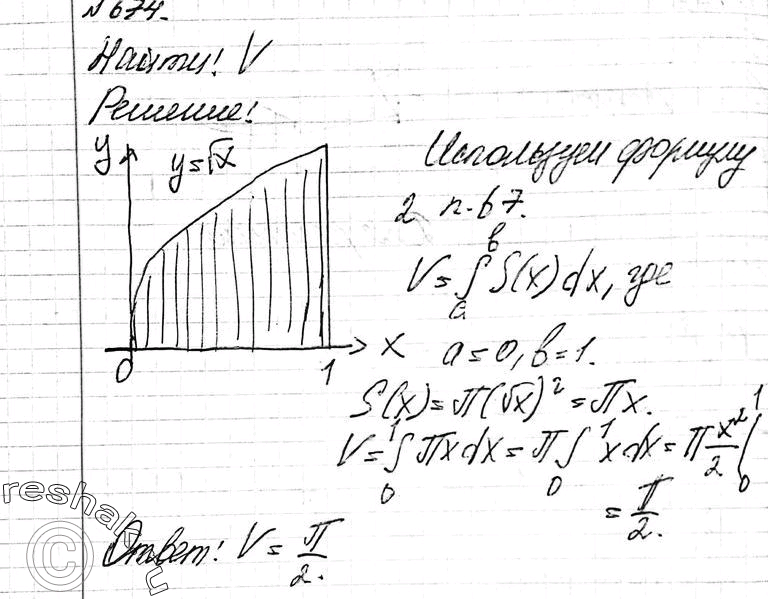 № 674.
Найти: V
Решение:
y
y=√x
0
1
x
Используем формулу
2 п. 67.
V = ∫ₐᵇ S(x) dx, где
a = 0, b = 1.
S(x) = π(√x)² = πx.
V = ∫₀¹ πx dx = π ∫₀¹ x dx = π x²/2 |₀¹
= π/2.
Ответ: V = π/2.
reshak.ru
©